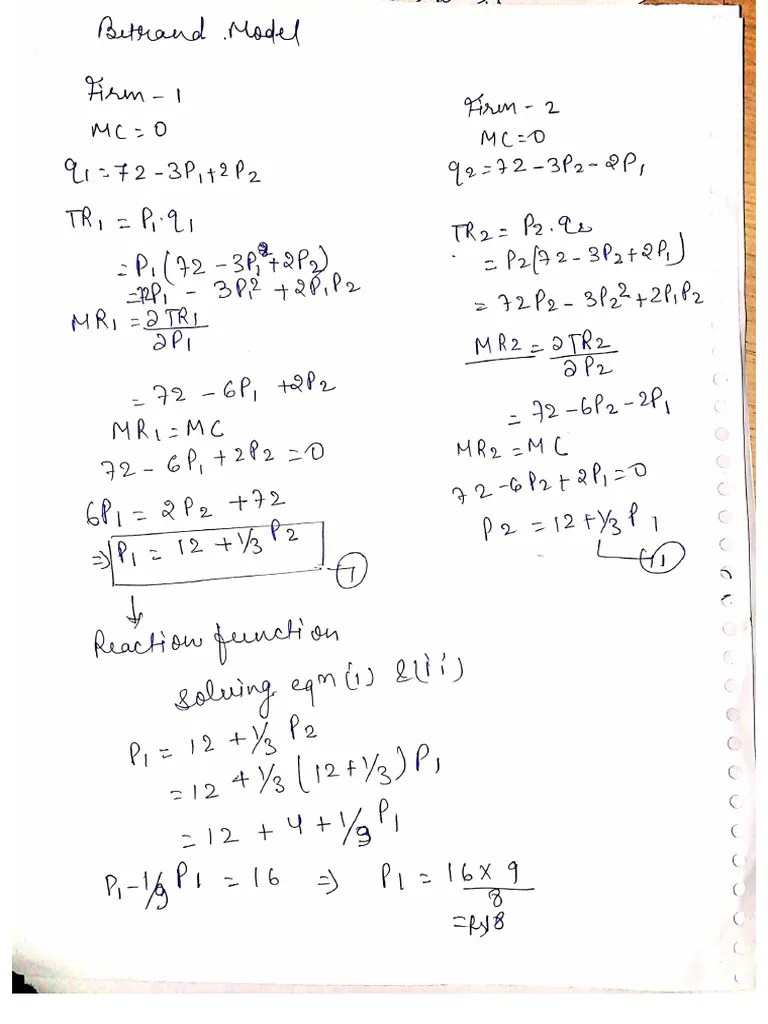 Betrand Model
Firm - 1
MC = 0
q1 = 72 - 3P1 + 2P2
TR1 = P1·q1
= P1(72 - 3P1² + 2P2)
= 72P1 - 3P1² + 2P1P2
MR1 = ∂TR1/∂P1
= 72 - 6P1 + 2P2
MR1 = MC
72 - 6P1 + 2P2 = 0
6P1 = 2P2 + 72
⇒ P1 = 12 + 1/3 P2
↓
Reaction function
Firm - 2
MC = 0
q2 = 72 - 3P2 - 2P1
TR2 = P2·q2
= P2(72 - 3P2 + 2P1)
= 72P2 - 3P2² + 2P1P2
MR2 = ∂TR2/∂P2
= 72 - 6P2 - 2P1
MR2 = MC
72 - 6P2 + 2P1 = 0
P2 = 12 + 1/3 P1
solving eqn (i) & (ii)
P1 = 12 + 1/3 P2
= 12 + 1/3 (12 + 1/3) P1
= 12 + 4 + 1/9 P1
P1 - 1/9 P1 = 16 ⇒ P1 = 16 × 9/8